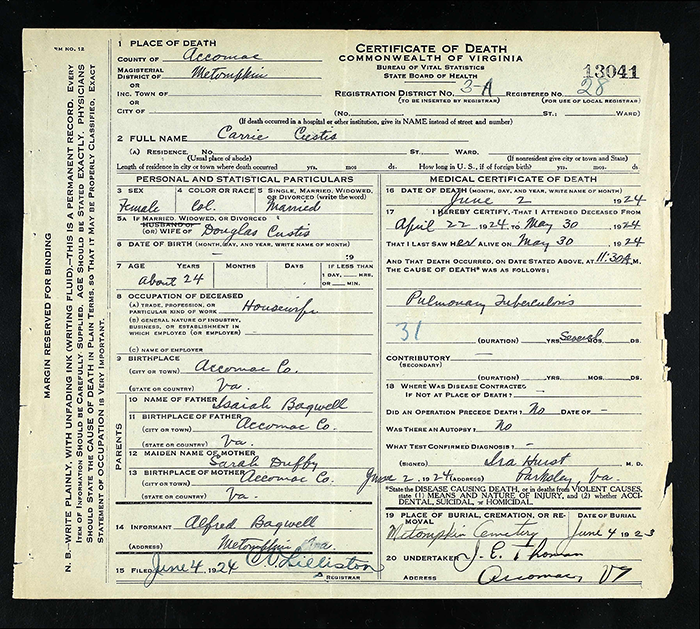 RM NO. 12
MARGIN RESERVED FOR BINDING
N. B.—WRITE PLAINLY, WITH UNFADING INK (WRITING FLUID).—THIS IS A PERMANENT RECORD. EVERY
ITEM OF INFORMATION SHOULD BE CAREFULLY SUPPLIED. AGE SHOULD BE STATED EXACTLY. PHYSICIANS
SHOULD STATE THE CAUSE OF DEATH IN PLAIN TERMS, SO THAT IT MAY BE PROPERLY CLASSIFIED. EXACT
STATEMENT OF OCCUPATION IS VERY IMPORTANT.
1 PLACE OF DEATH
COUNTY OF Accomac
MAGISTERIAL
DISTRICT OF Metompkin
OR
INC. TOWN OF
OR
CITY OF
CERTIFICATE OF DEATH
COMMONWEALTH OF VIRGINIA
BUREAU OF VITAL STATISTICS
STATE BOARD OF HEALTH
13041
REGISTRATION DISTRICT NO. 3-A REGISTERED NO. 28
(TO BE INSERTED BY REGISTRAR) (FOR USE OF LOCAL REGISTRAR)
(NO. ST.; WARD)
(If death occurred in a hospital or other institution, give its NAME instead of street and number)
2 FULL NAME Carrie Custis
(A) RESIDENCE. NO. ST. WARD.
(Usual place of abode) (If nonresident give city or town and State)
Length of residence in city or town where death occurred yrs. mos ds. How long in U. S., if of foreign birth? yrs. mos. ds.
PERSONAL AND STATISTICAL PARTICULARS
3 SEX 4 COLOR OR RACE 5 SINGLE, MARRIED, WIDOWED,
OR DIVORCED (write the word)
Female Col. Married
5A IF MARRIED, WIDOWED, OR DIVORCED
HUSBAND OF
(OR) WIFE OF Douglas Custis
6 DATE OF BIRTH (MONTH, DAY, AND YEAR, WRITE NAME OF MONTH)
— 19
7 AGE YEARS MONTHS DAYS IF LESS THAN
1 DAY, HRS.
OR MIN.
About 24
8 OCCUPATION OF DECEASED
(A) TRADE, PROFESSION, OR
PARTICULAR KIND OF WORK Housewife
(B) GENERAL NATURE OF INDUSTRY,
BUSINESS, OR ESTABLISHMENT IN
WHICH EMPLOYED (OR EMPLOYER) —
(C) NAME OF EMPLOYER
9 BIRTHPLACE
(CITY OR TOWN) Accomac Co.
(STATE OR COUNTRY) Va.
PARENTS
10 NAME OF FATHER Isaiah Bagwell
11 BIRTHPLACE OF FATHER
(CITY OR TOWN) Accomac Co.
(STATE OR COUNTRY) Va.
12 MAIDEN NAME OF MOTHER
Sarah Duffy
13 BIRTHPLACE OF MOTHER
(CITY OR TOWN) Accomac Co.
(STATE OR COUNTRY) Va.
14 INFORMANT Alfred Bagwell
(ADDRESS) Metompkin Va.
15 FILED June 4, 1924 Lilliston
REGISTRAR
MEDICAL CERTIFICATE OF DEATH
16 DATE OF DEATH (MONTH, DAY, AND YEAR, WRITE NAME OF MONTH)
June 2 1924
17 I HEREBY CERTIFY, THAT I ATTENDED DECEASED FROM
April 22 1924 TO May 30 1924
THAT I LAST SAW her ALIVE ON May 30 1924
AND THAT DEATH OCCURRED, ON DATE STATED ABOVE, AT 11:30 A.M.
THE CAUSE OF DEATH* WAS AS FOLLOWS:
Pulmonary Tuberculosis
31
(DURATION) YRS. Several MOS. DS.
CONTRIBUTORY —
(SECONDARY)
(DURATION) YRS. MOS. DS.
18 WHERE WAS DISEASE CONTRACTED
IF NOT AT PLACE OF DEATH? —
DID AN OPERATION PRECEDE DEATH? No DATE OF —
WAS THERE AN AUTOPSY? No
WHAT TEST CONFIRMED DIAGNOSIS? —
(SIGNED) Ira Hurst M. D.
June 2, 1924 (ADDRESS) Parksley Va.
*State the DISEASE CAUSING DEATH, or in deaths from VIOLENT CAUSES,
state (1) MEANS AND NATURE OF INJURY, and (2) whether ACCI-
DENTAL, SUICIDAL, or HOMICIDAL.
19 PLACE OF BURIAL, CREMATION, OR RE-
MOVAL DATE OF BURIAL
Metompkin Cemetery June 4 1923
20 UNDERTAKER J. E. Thomas
ADDRESS Accomac, Va